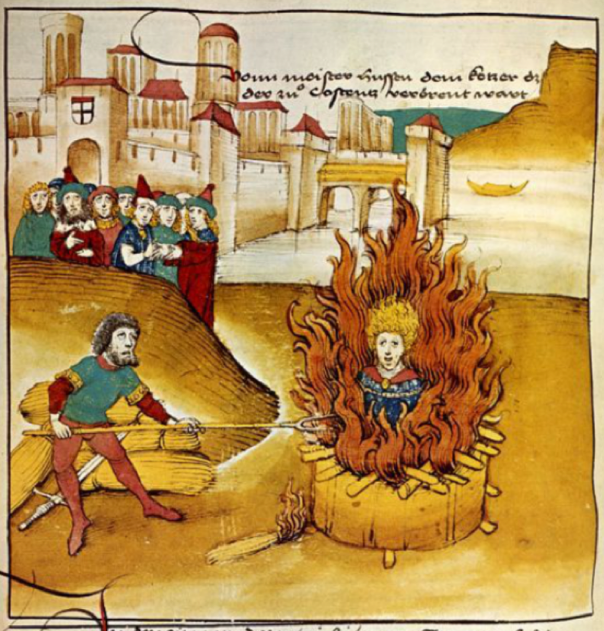 Vonn meister hussen dem ketzer dz
der zů Costentz verbrent wart